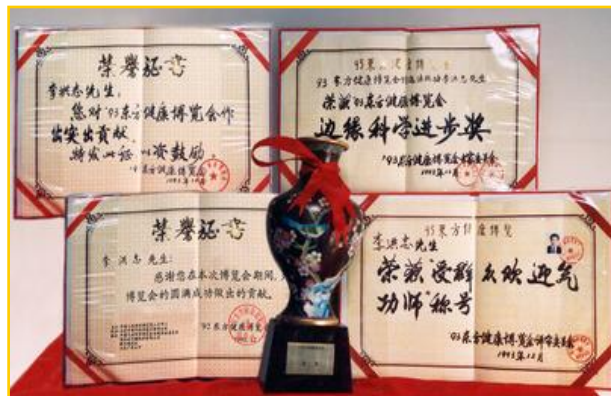 荣誉证书
李洪志先生:
您对'93东方健康博览会作
出突出贡献。
特发此证 以资鼓励。
'93东方健康博览会
1993.12月
'93东方健康博览会
李洪志先生
荣获'93东方健康博览会
边缘科学进步奖
'93东方健康博览会评审委员会
1993年12月
荣誉证书
李洪志 先生:
感谢您在本次博览会期间,
博览会的圆满成功做出的贡献。
92东方健康博览会
93东方健康博览
李洪志先生
荣获受群众欢迎气
功师称号
'93东方健康博览会评审委员会
1993年12月